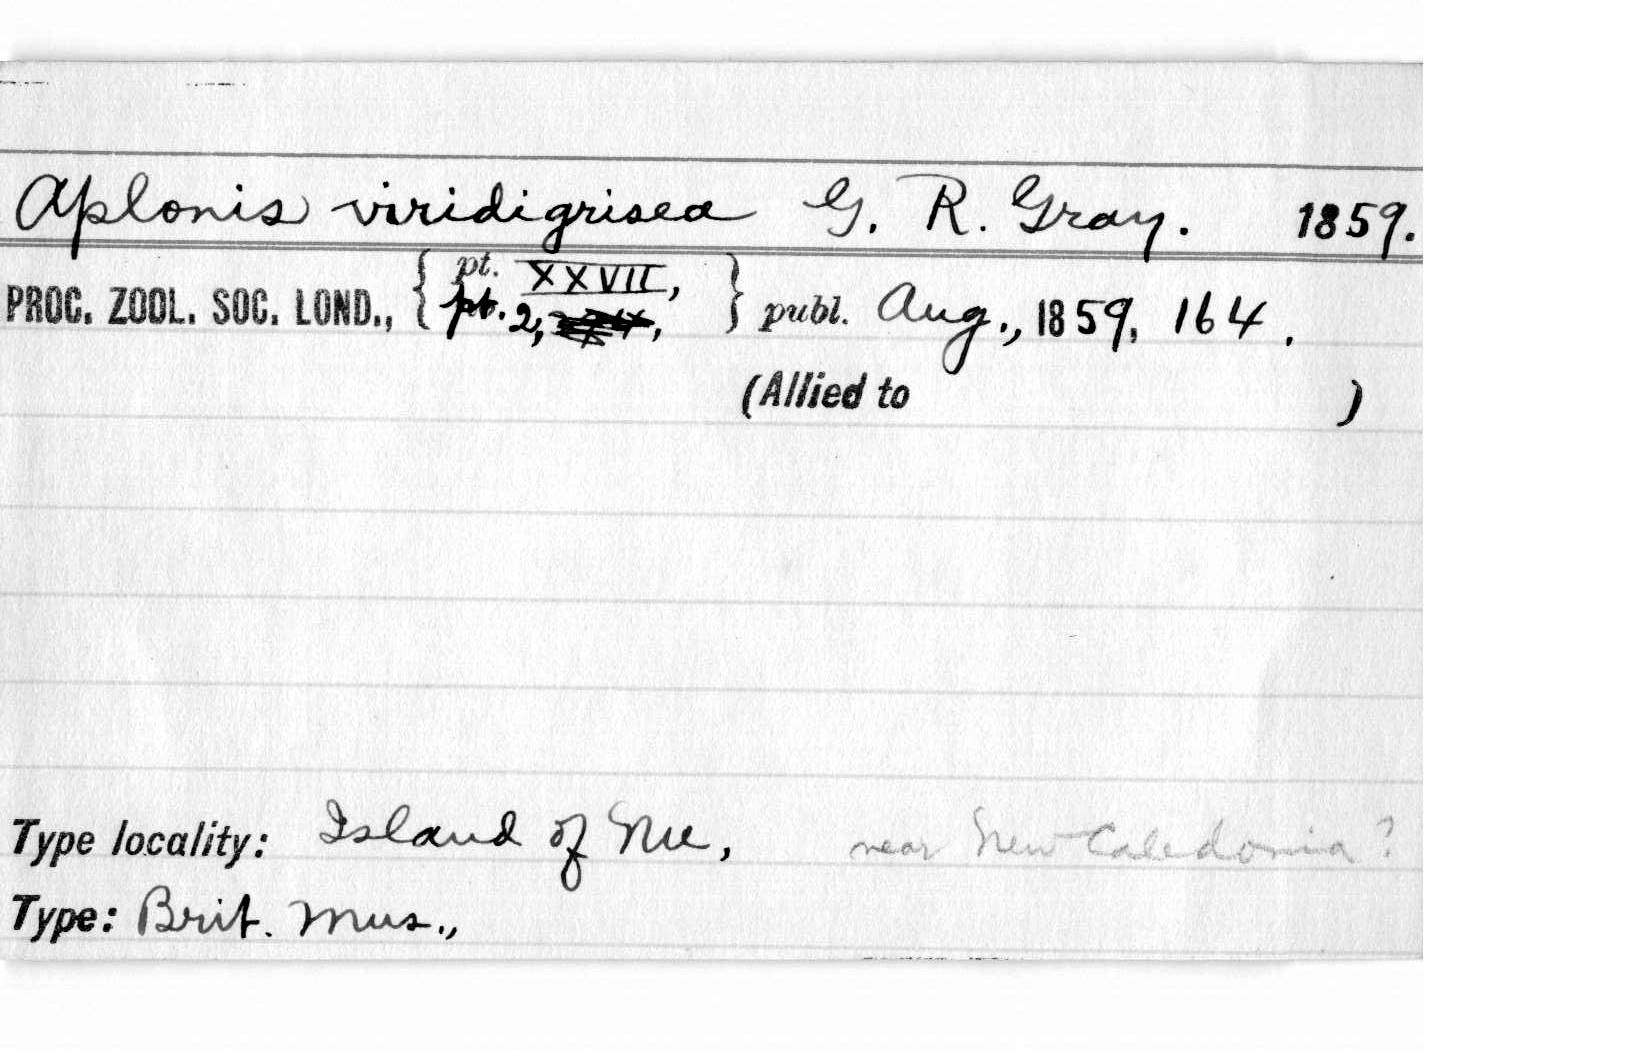 Aplonis viridigrisea G. R. Gray. 1859.
PROC. ZOOL. SOC. LOND., { pt. XXVII, pt. 2, } publ. Aug., 1859, 164.
(Allied to )
Type locality: Island of Nu, near New Caledonia?
Type: Brit. Mus.,